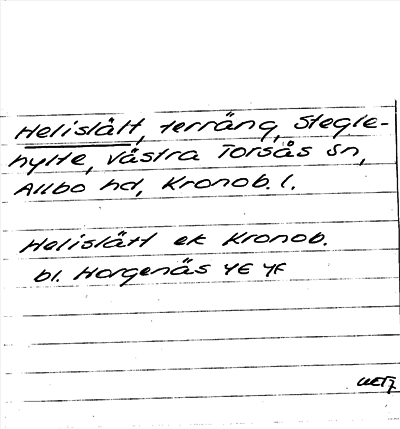 Helislätt, terräng, Stegle-
hylte, Västra Torsås sn,
Allbo hd, Kronob. l.
Helislätt ek Kronob.
bl. Horgenäs 4E 4F